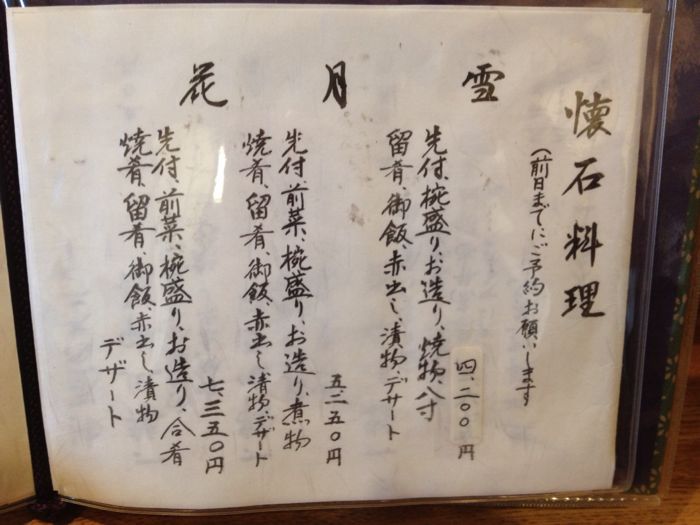 懐石料理
(前日までにご予約お願いします
雪
先付、椀盛り、お造り、焼物、八寸
留肴、御飯、赤出し、漬物、デザート
四、二〇〇円
月
先付、前菜、椀盛り、お造り、煮物
焼肴、留肴、御飯、赤出し、漬物、デザート
五、二五〇円
花
先付、前菜、椀盛り、お造り、合肴
焼肴、留肴、御飯、赤出し、漬物
デザート
七、三五〇円